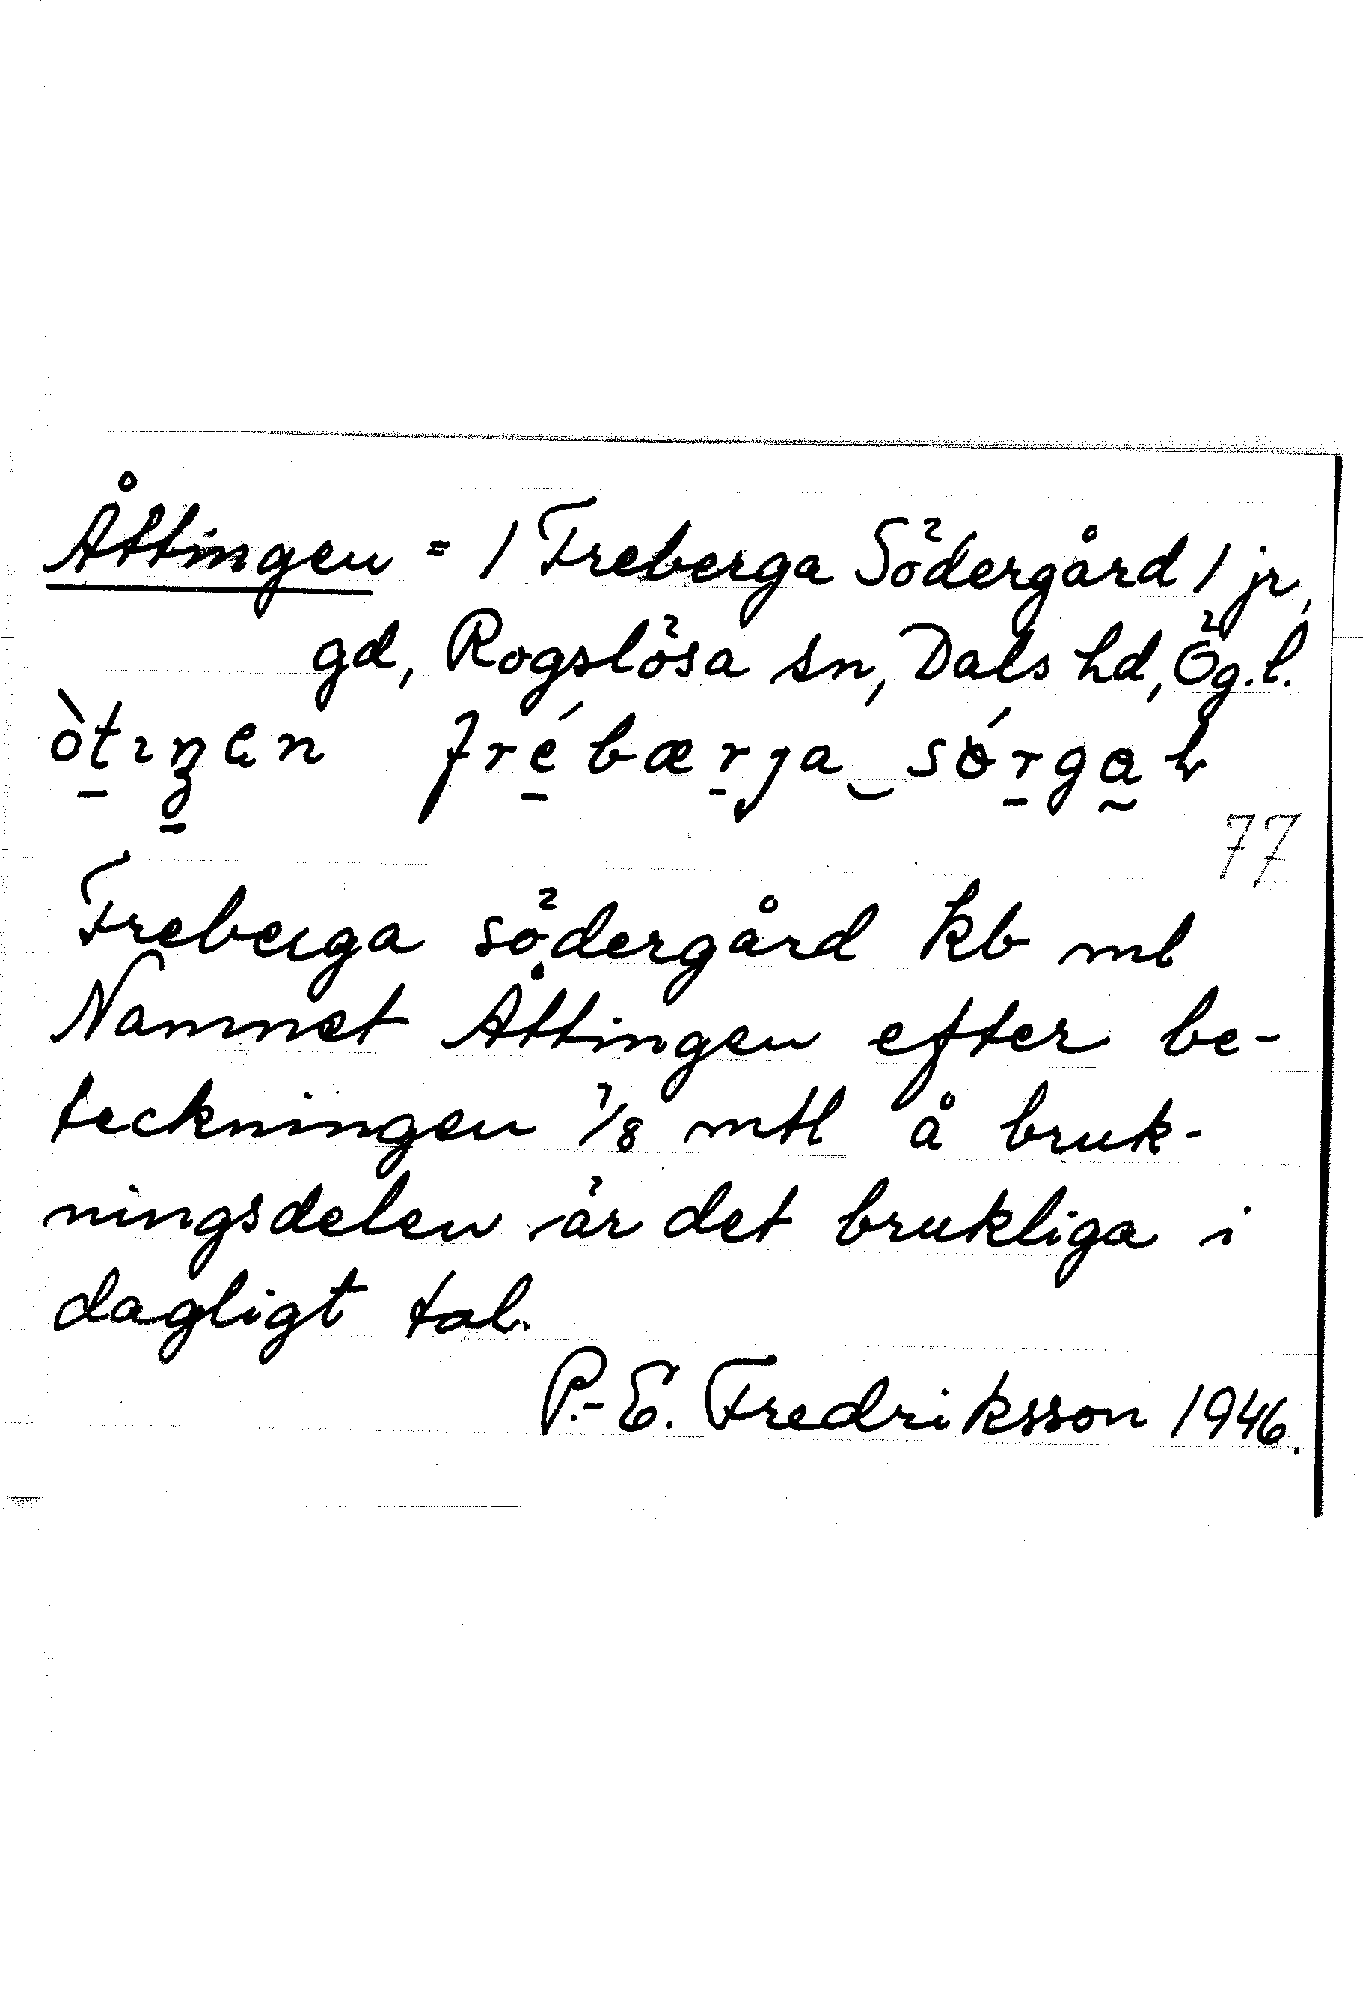 Åttingen = / Freberga Södergård / jr,
gd, Rogslösa sn, Dals hd, Ög. l.
òtıŋen frébærja‿sórgaɽ
77
Freberga södergård kb ml
Namnet Åttingen efter be-
teckningen 1/8 mtl å bruk-
ningsdelen är det brukliga i
dagligt tal.
P.-E. Fredriksson 1946.